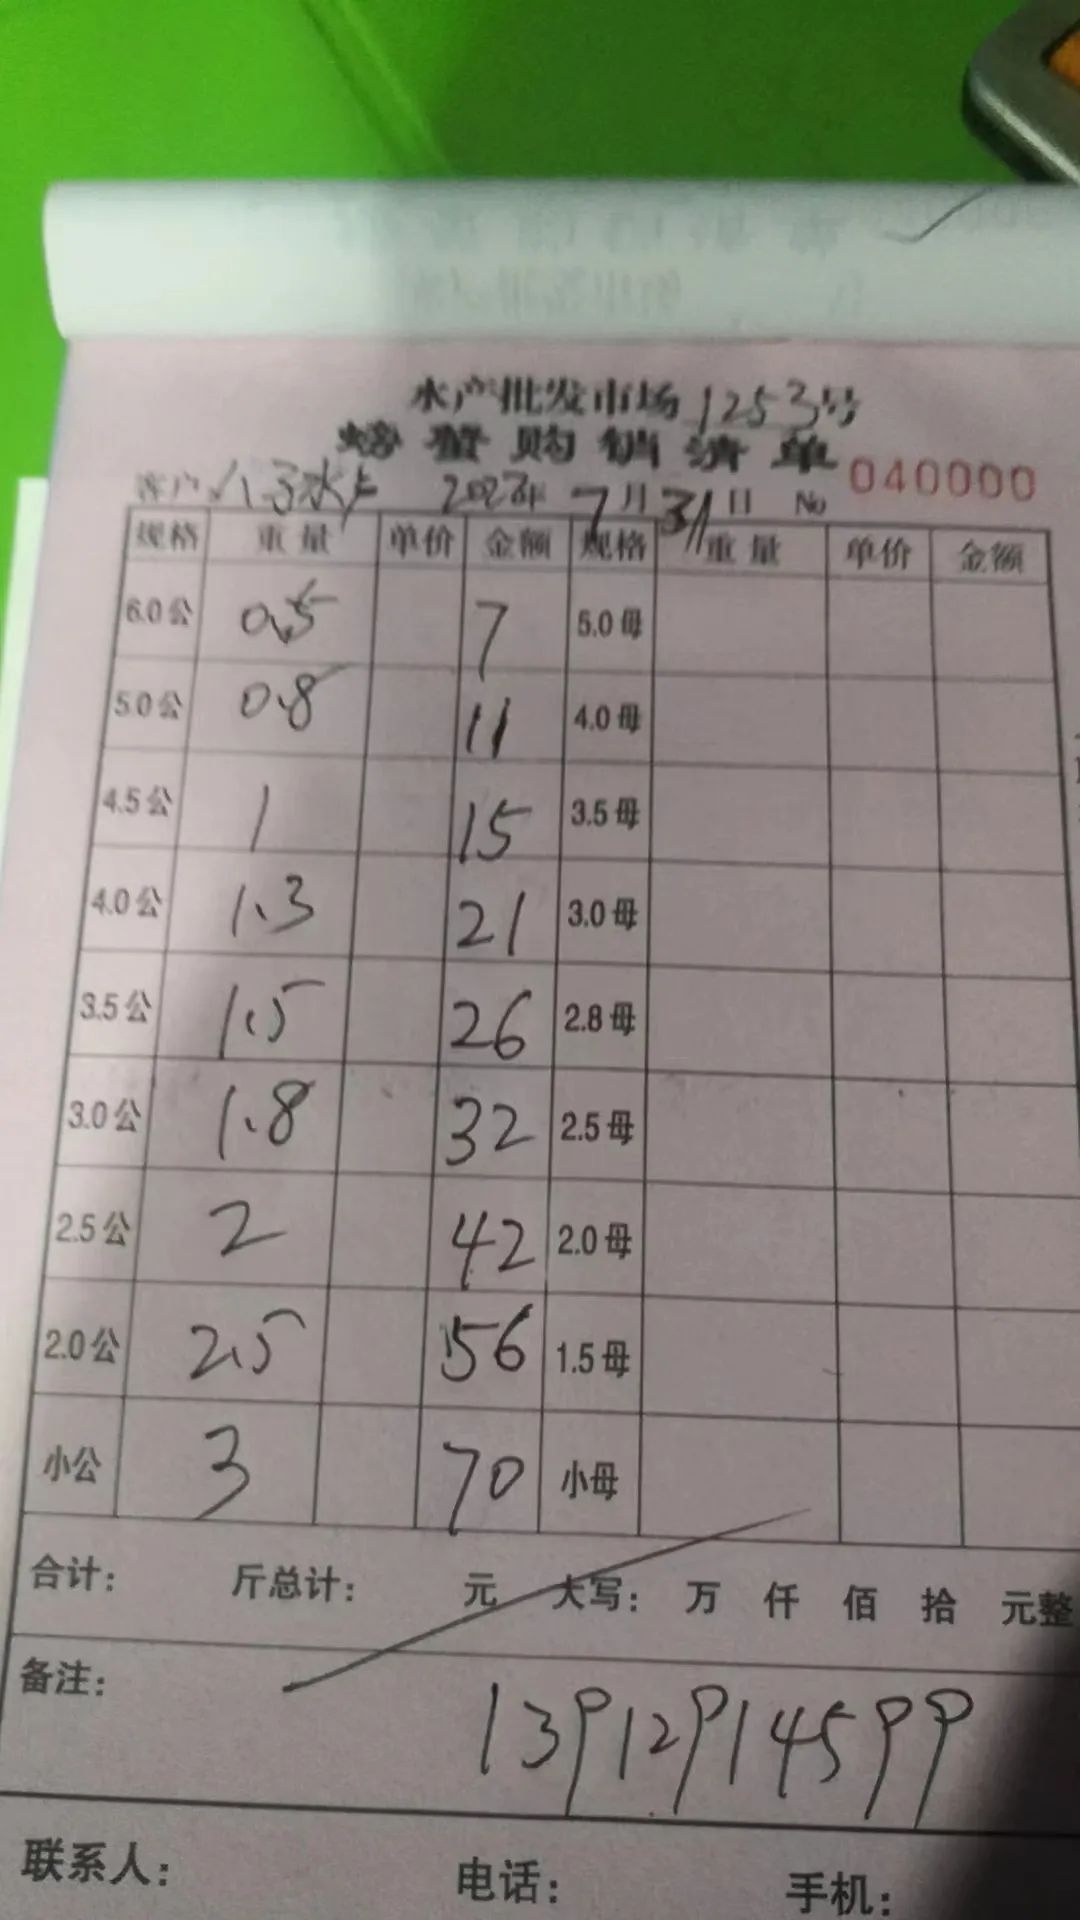 水产批发市场 1253号
螃蟹购销清单
客户 2023年 7月31日 No 040000
规格 重量 单价 金额 规格 重量 单价 金额
6.0公 0.5 7 5.0母
5.0公 0.8 11 4.0母
4.5公 1 15 3.5母
4.0公 1.3 21 3.0母
3.5公 1.5 26 2.8母
3.0公 1.8 32 2.5母
2.5公 2 42 2.0母
2.0公 2.5 56 1.5母
小公 3 70 小母
合计: 斤总计: 元 大写: 万 仟 佰 拾 元整
备注:
13912914599
联系人: 电话: 手机: